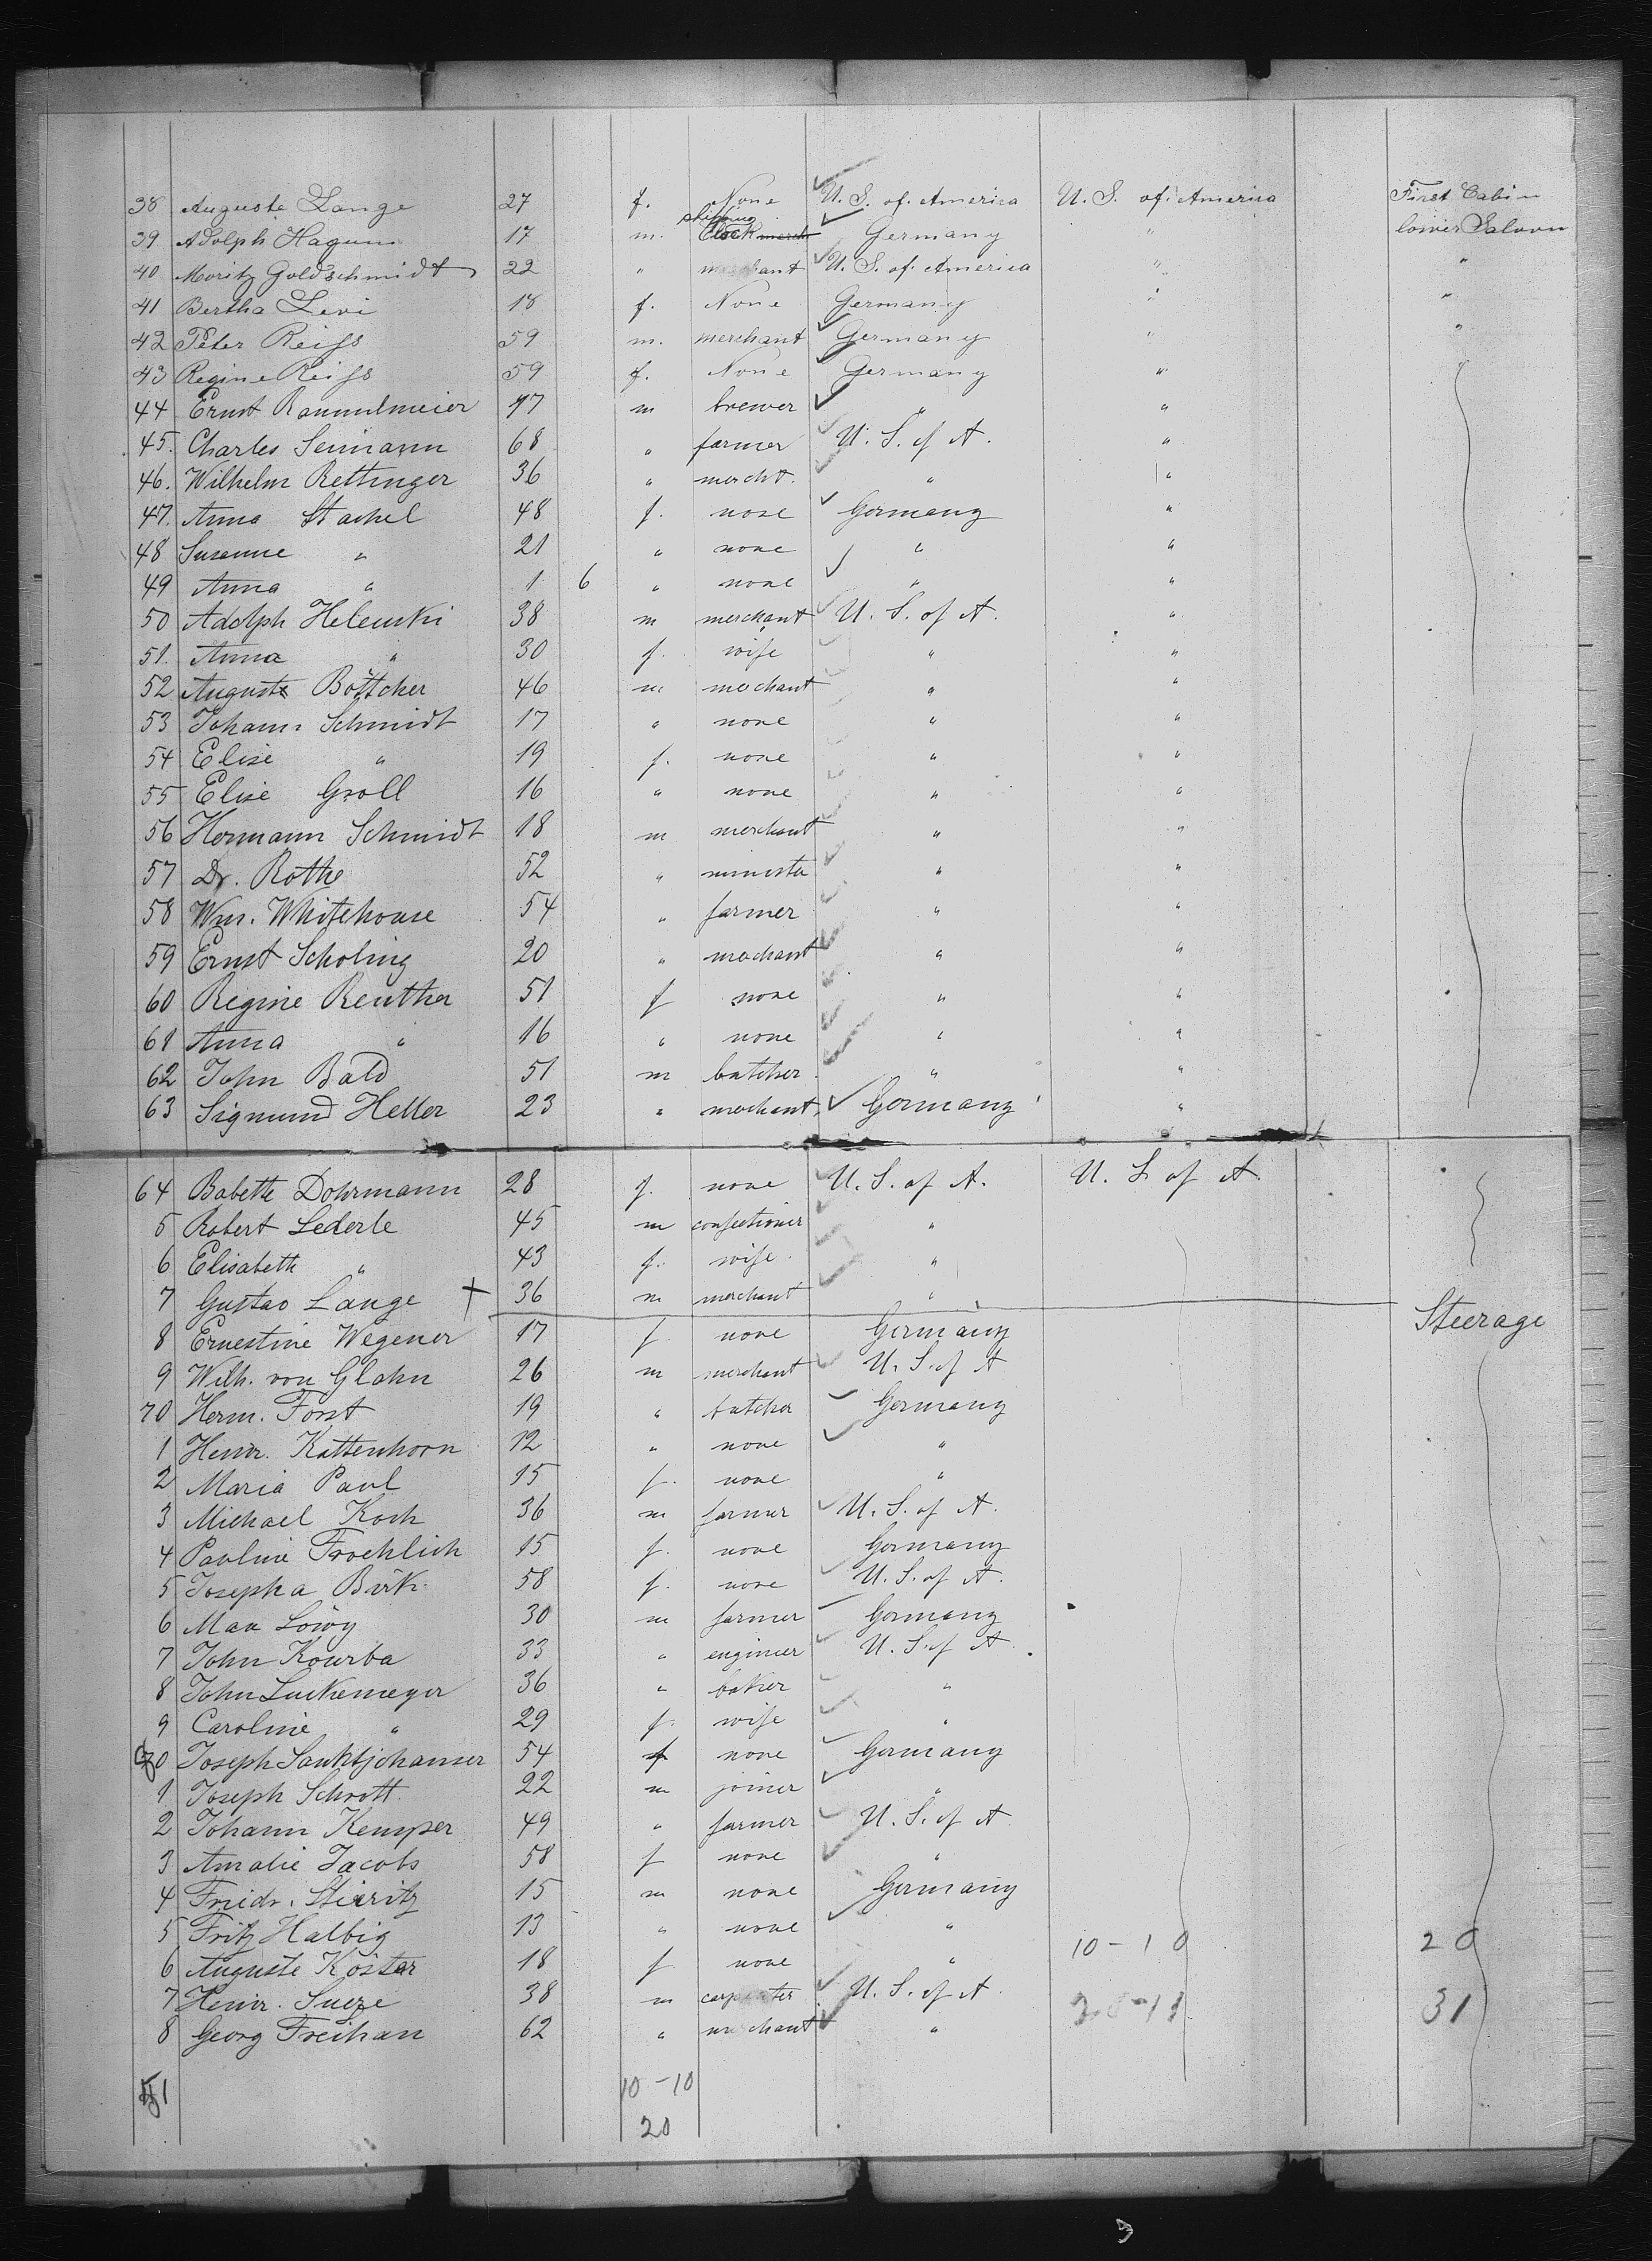 38 Auguste Lange 27 f. None U. S. of America U. S. of America First Cabin
39 Adolph Hagun 17 m. shipping Clock merch Germany " lower Saloon
40 Moritz Goldschmidt 22 " merchant U. S. of America " "
41 Bertha Levi 18 f. None Germany " "
42 Peter Reiss 59 m. merchant Germany " "
43 Regine Reiss 59 f. None Germany " "
44 Ernst Rammelmeier 47 m brewer " "
45. Charles Seimann 68 " farmer U. S. of A. "
46. Wilhelm Rettinger 36 " mercht. " "
47. Anna Stachel 48 f. none Germany "
48 Susanne " 21 " none " "
49 Anna " 1 6 " none " "
50 Adolph Helenski 38 m merchant U. S. of A. "
51. Anna " 30 f. wife " "
52 August Böttcher 46 m merchant " "
53 Johann Schmidt 17 " none " "
54 Elise " 19 f. none " "
55 Elise Groll 16 " none " "
56 Hermann Schmidt 18 m merchant " "
57 Dr. Rothe 52 " minister " "
58 Wm. Whitehouse 54 " farmer " "
59 Ernst Scholing 20 " merchant " "
60 Regine Reuther 51 f none " "
61 Anna " 16 " none " "
62 John Bald 51 m butcher " "
63 Sigmund Heller 23 " merchant Germany "
64 Babette Dohrmann 28 f. none U. S. of A. U. S. of A.
5 Robert Lederle 45 m confectioner "
6 Elisabeth " 43 f. wife "
7 Gustav Lange + 36 m merchant "
Steerage
8 Ernestine Wegener 17 f. none Germany
9 Wilh. von Glahn 26 m merchant U. S. of A
70 Herm. Forst 19 " butcher Germany
1 Henr. Kattenhorn 12 " none "
2 Maria Paul 15 f. none "
3 Michael Koch 36 m farmer U. S. of A.
4 Pauline Froehlich 15 f. none Germany
5 Josepha Birk. 58 f. none U. S. of A.
6 Max Löwy 30 m farmer Germany
7 John Kourba 33 " engineer U. S. of A.
8 John Luckemeyer 36 " baker "
9 Caroline " 29 f. wife "
80 Joseph Sanktjohanser 54 f none Germany
1 Joseph Schrott 22 m joiner "
2 Johann Kemper 49 " farmer U. S. of A
3 Amalie Jacobs 58 f none "
4 Friedr. Stieritz 15 m none Germany
5 Fritz Halbig 13 " none "
10-10 20
6 Auguste Köster 18 f none "
7 Heinr. Sueze 38 m carpenter U. S. of A.
20-11 31
8 Georg Freihan 62 " merchant "
51 10-10
20